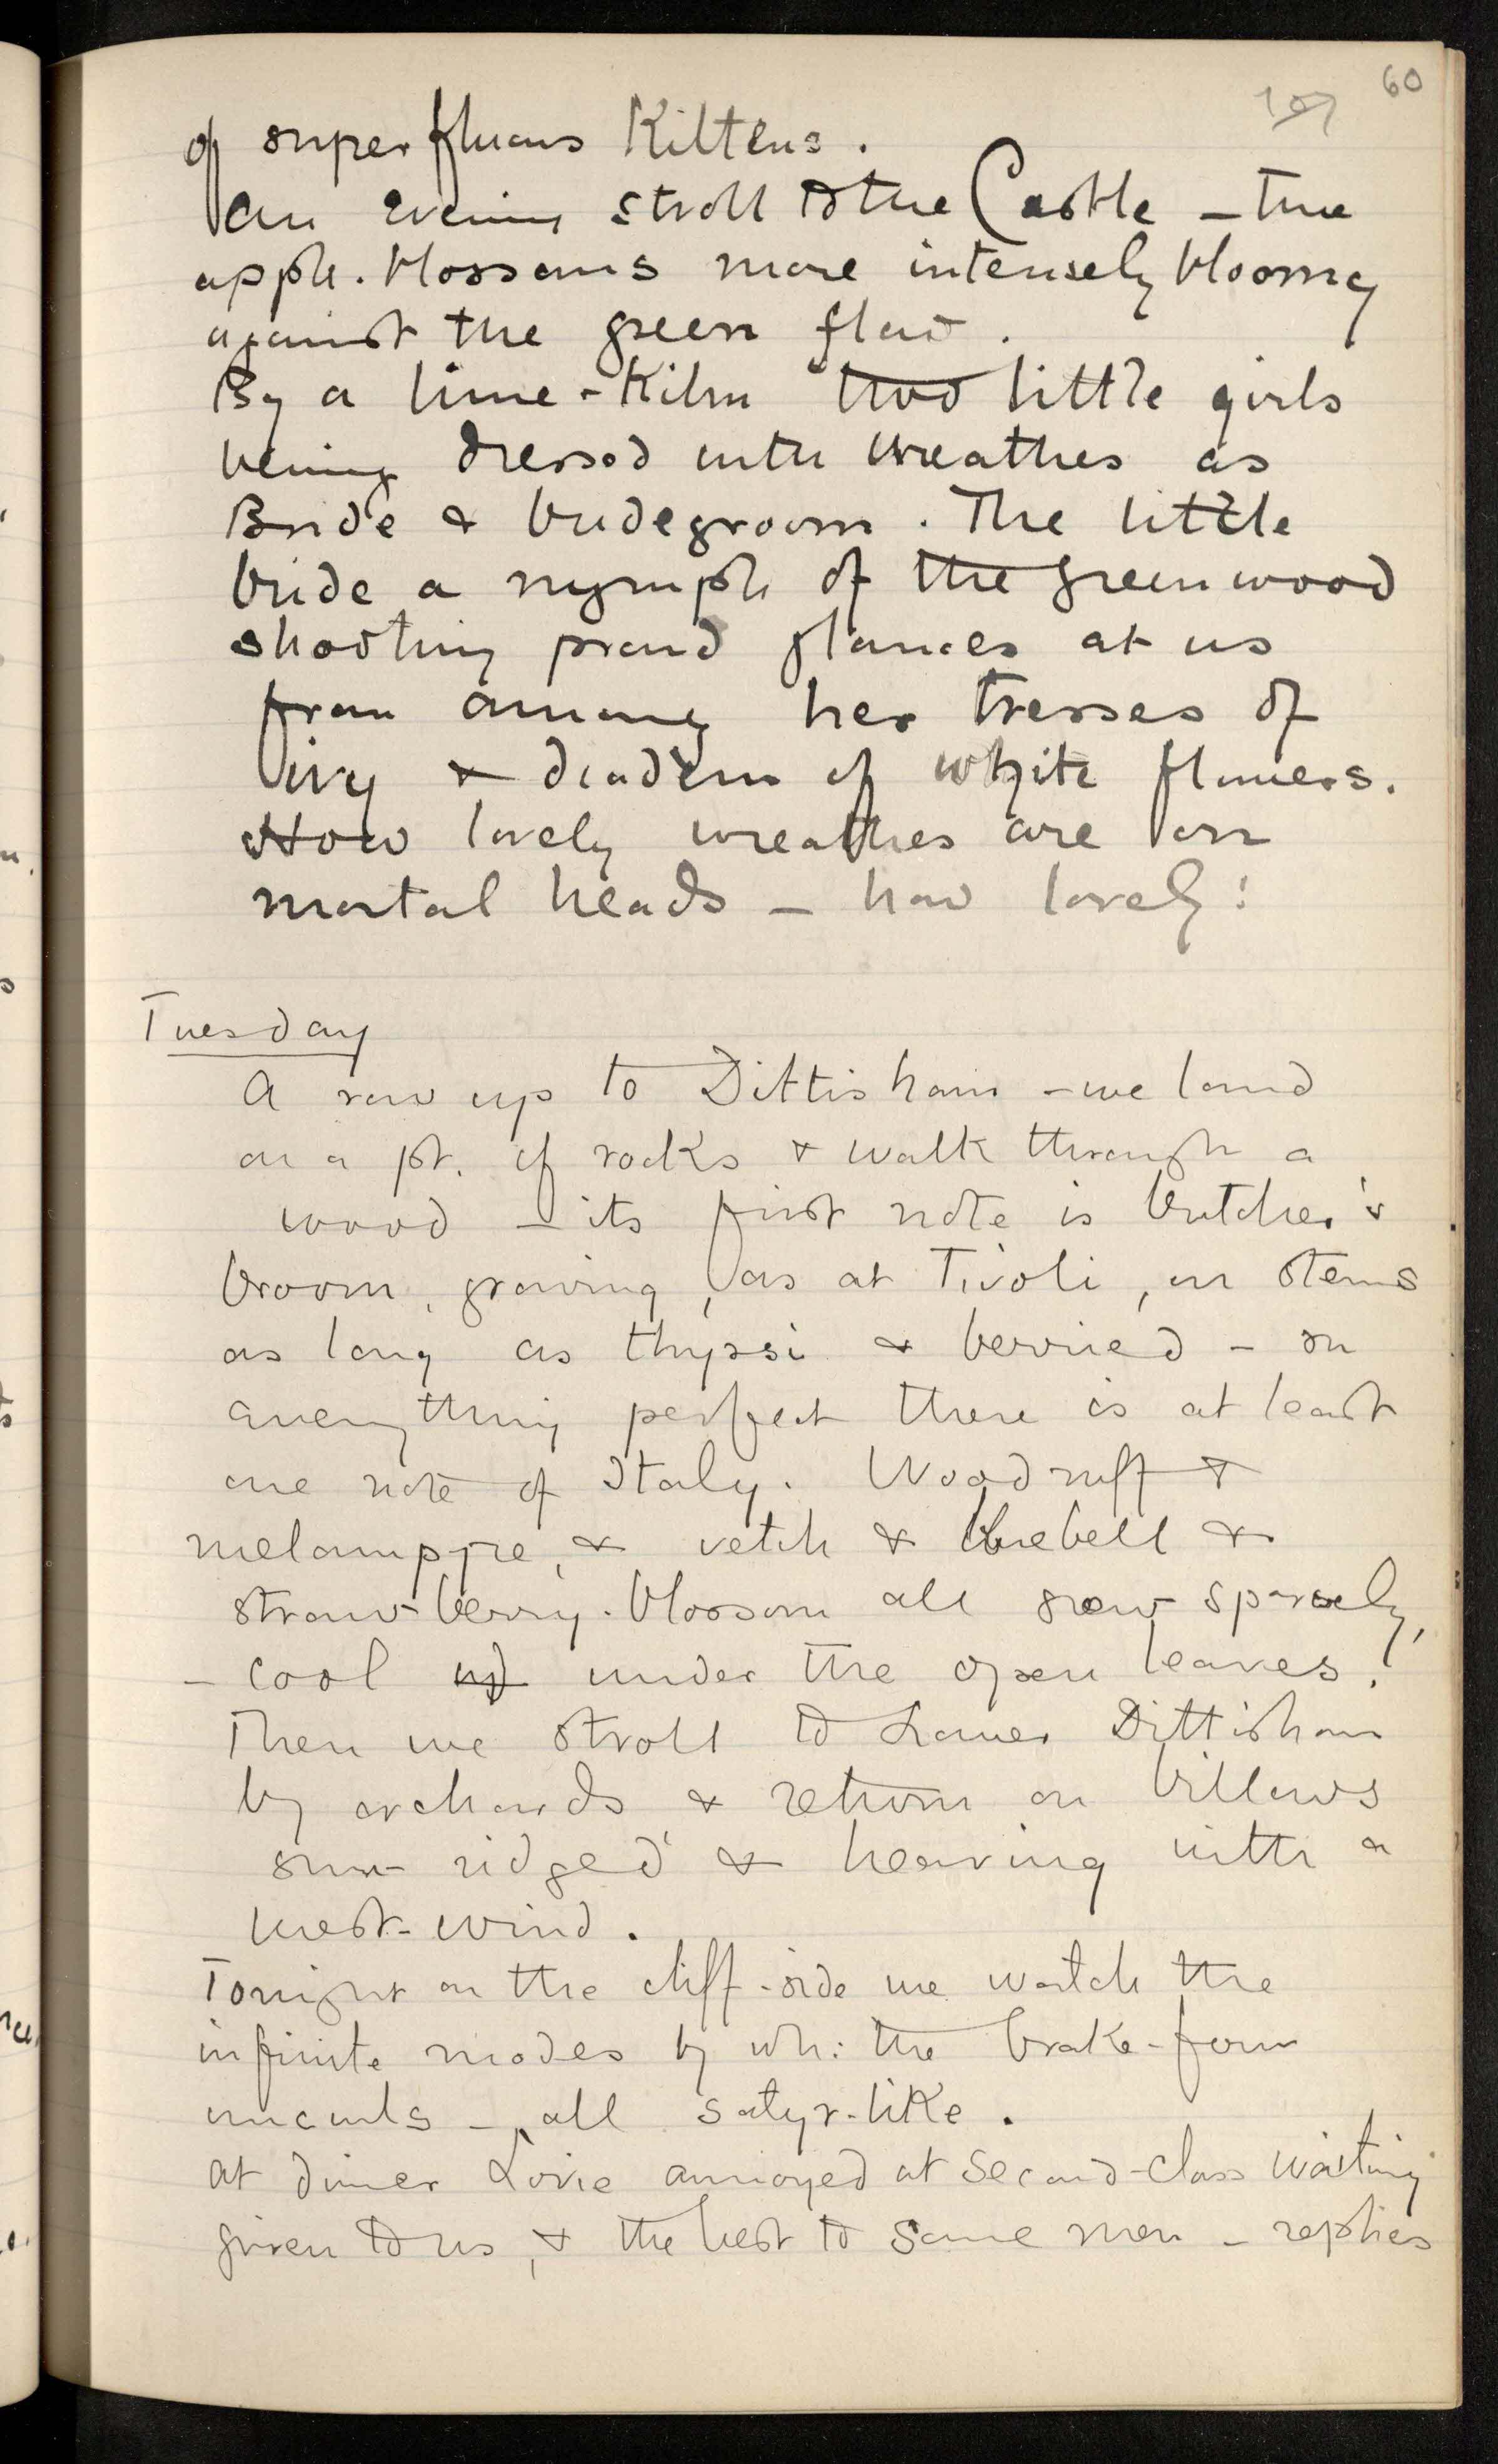 60
of superfluous Kittens.
An evening stroll to the Castle – the
apple-blossoms more intensely bloomy
against the green flow.
By a lime-kiln two little girls
being dressed with wreathes as
Bride & bridegroom. The little
bride a nymph of the greenwood
shooting proud glances at us
from among her tresses of
ivy & diadem of white flowers.
How lovely wreathes are on
mortal heads – how lovely!
Tuesday
A row up to Dittisham – we land
on a pt. of rocks & walk through a
wood – its first note is butcher's
broom, growing, as at Tivoli, on stems
as long as thyrsi & berried – on
everything perfect there is at least
one note of Italy. Woodruff &
melampyre, & vetch & bluebell &
strawberry-blossom all grow sparsely,
– cool under the open leaves!
Then we stroll to Lower Dittisham
by orchards & return on billows
sun-ridged & heaving with a
west-wind.
Tonight on the cliff-side we watch the
infinite modes by wh: the brake-fern
uncurls – all satyr-like.
At dinner Lovie annoyed at second-class waiting
given to us, & the best to some men – replies